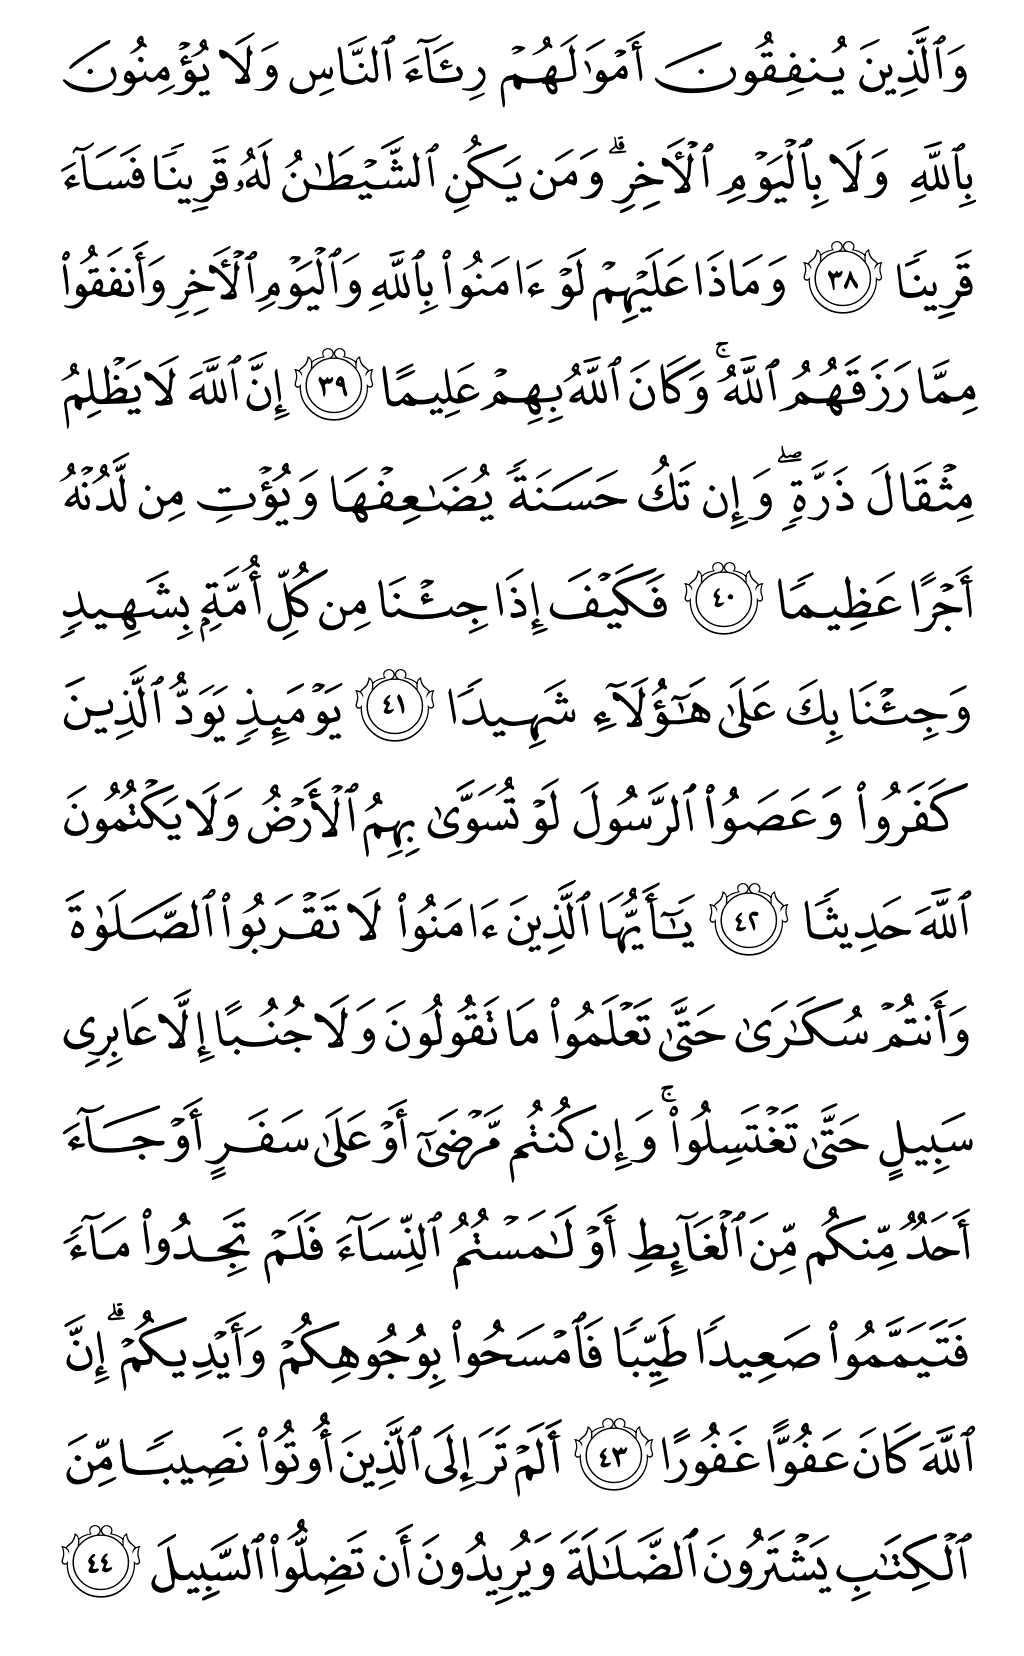 وَٱلَّذِينَ يُنفِقُونَ أَمۡوَٰلَهُمۡ رِئَآءَ ٱلنَّاسِ وَلَا يُؤۡمِنُونَ
بِٱللَّهِ وَلَا بِٱلۡيَوۡمِ ٱلۡأٓخِرِۗ وَمَن يَكُنِ ٱلشَّيۡطَٰنُ لَهُۥ قَرِينٗا فَسَآءَ
قَرِينٗا ٣٨ وَمَاذَا عَلَيۡهِمۡ لَوۡ ءَامَنُواْ بِٱللَّهِ وَٱلۡيَوۡمِ ٱلۡأٓخِرِ وَأَنفَقُواْ
مِمَّا رَزَقَهُمُ ٱللَّهُۚ وَكَانَ ٱللَّهُ بِهِمۡ عَلِيمًا ٣٩ إِنَّ ٱللَّهَ لَا يَظۡلِمُ
مِثۡقَالَ ذَرَّةٖۖ وَإِن تَكُ حَسَنَةٗ يُضَٰعِفۡهَا وَيُؤۡتِ مِن لَّدُنۡهُ
أَجۡرًا عَظِيمٗا ٤٠ فَكَيۡفَ إِذَا جِئۡنَا مِن كُلِّ أُمَّةِۭ بِشَهِيدٖ
وَجِئۡنَا بِكَ عَلَىٰ هَٰٓؤُلَآءِ شَهِيدٗا ٤١ يَوۡمَئِذٖ يَوَدُّ ٱلَّذِينَ
كَفَرُواْ وَعَصَوُاْ ٱلرَّسُولَ لَوۡ تُسَوَّىٰ بِهِمُ ٱلۡأَرۡضُ وَلَا يَكۡتُمُونَ
ٱللَّهَ حَدِيثٗا ٤٢ يَٰٓأَيُّهَا ٱلَّذِينَ ءَامَنُواْ لَا تَقۡرَبُواْ ٱلصَّلَوٰةَ
وَأَنتُمۡ سُكَٰرَىٰ حَتَّىٰ تَعۡلَمُواْ مَا تَقُولُونَ وَلَا جُنُبًا إِلَّا عَابِرِي
سَبِيلٍ حَتَّىٰ تَغۡتَسِلُواْۚ وَإِن كُنتُم مَّرۡضَىٰٓ أَوۡ عَلَىٰ سَفَرٍ أَوۡ جَآءَ
أَحَدٞ مِّنكُم مِّنَ ٱلۡغَآئِطِ أَوۡ لَٰمَسۡتُمُ ٱلنِّسَآءَ فَلَمۡ تَجِدُواْ مَآءٗ
فَتَيَمَّمُواْ صَعِيدٗا طَيِّبٗا فَٱمۡسَحُواْ بِوُجُوهِكُمۡ وَأَيۡدِيكُمۡۗ إِنَّ
ٱللَّهَ كَانَ عَفُوًّا غَفُورًا ٤٣ أَلَمۡ تَرَ إِلَى ٱلَّذِينَ أُوتُواْ نَصِيبٗا مِّنَ
ٱلۡكِتَٰبِ يَشۡتَرُونَ ٱلضَّلَٰلَةَ وَيُرِيدُونَ أَن تَضِلُّواْ ٱلسَّبِيلَ ٤٤